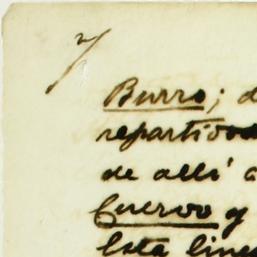 7
Burro; d
repartidod
de allí a
Cuervo y
Esta line